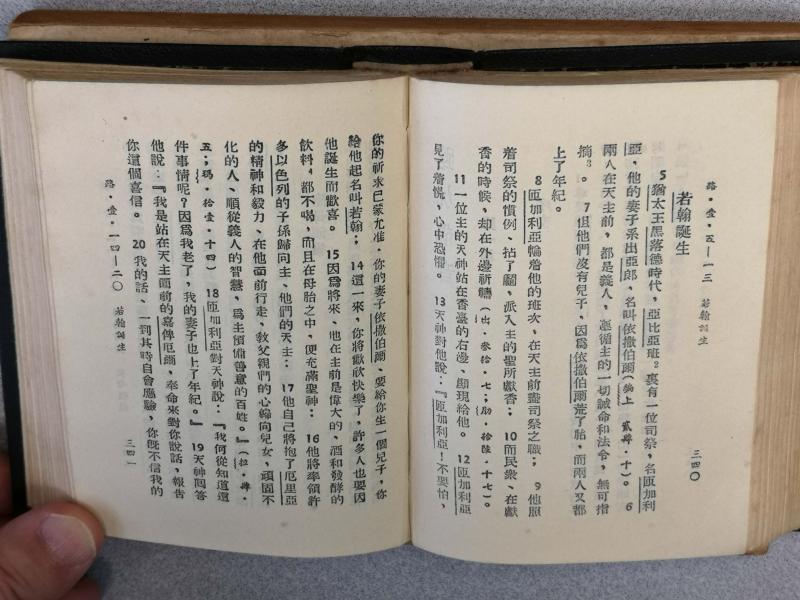 路・壹・五—一三 若翰誕生 三四〇
若翰誕生
5 猶太王黑落德時代，亞比亞班²裏有一位司祭，名匝加利
亞，他的妻子系出亞郎，名叫依撒伯爾（編上 貳肆・十）。 6
兩人在天主前，都是義人，遵循主的一切誡命和法令，無可指
摘³。 7 但他們沒有兒子，因爲依撒伯爾荒了胎，而兩人又都
上了年紀。
8 匝加利亞輪着他的班次，在天主前盡司祭之職； 9 他照
着司祭的慣例、拈了鬮，派入主的聖所獻香； 10 而民衆、在獻
香的時候，却在外邊祈禱（出・叁拾・七；肋・拾陸・十七）。
11 一位主的天神站在香臺的右邊、顯現給他。 12 匝加利亞
見了着慌，心中恐懼。 13 天神對他說：『匝加利亞！不要怕，
你的祈求已蒙允准，你的妻子依撒伯爾、要給你生一個兒子，你
給他起名叫若翰； 14 這一來，你將歡欣快樂了，許多人也要因
他誕生而歡喜。 15 因爲將來，他在主前是偉大的、酒和發酵的
飲料⁴都不喝，而且在母胎之中，便充滿聖神： 16 他將率領許
多以色列的子孫歸向主、他們的天主： 17 他自己將抱了厄里亞
的精神和毅力、在他面前行走，敎父親們的心歸向兒女，頑固不
化的人、順從義人的智慧，爲主預備善意的百姓。』（拉・肆・
五；瑪・拾壹・十四） 18 匝加利亞對天神說：『我何從知道這
件事情呢？因爲我老了，我的妻子也上了年紀。』 19 天神回答
他說：『我是站在天主面前的嘉俾厄爾，奉命來對你說話，報告
你這個喜信。 20 我的話、一到其時自會應驗，你既不信我的
路・壹・一四—二〇 若翰誕生 三四一